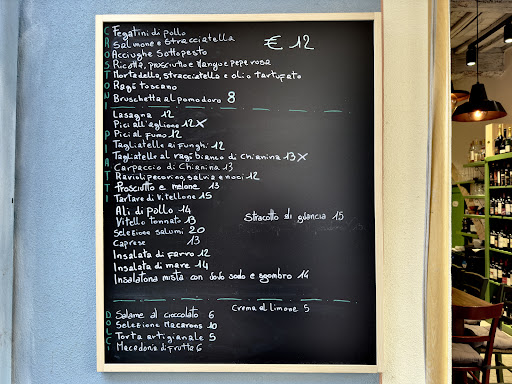 CROSTONI
Fegatini di pollo
Salmone e Stracciatella
€ 12
Acciughe Sottopesto
Ricotta, prosciutto e Mango e pepe rosa
Mortadella, stracciatella e olio tartufato
Ragù toscano
Bruschetta al pomodoro 8
PIATTI
Lasagna 12
Pici all'aglione 12 X
Pici al fumo 12
Tagliatelle ai funghi 12
Tagliatelle al ragù bianco di Chianina 13 X
Carpaccio di Chianina 13
Ravioli pecorino, salvia e noci 12
Prosciutto e melone 13
Tartare di vitellone 15
Ali di pollo 14
Stracotto di guancia 15
Vitello tonnato 13
Selezione salumi 20
Caprese 13
Insalata di farro 12
Insalata di mare 14
Insalatona mista con uovo sodo e sgombro 14
DOLCI
Crema al limone 5
Salame al cioccolato 6
Selezione Macarons 10
Torta artigianale 5
Macedonia di frutta 6